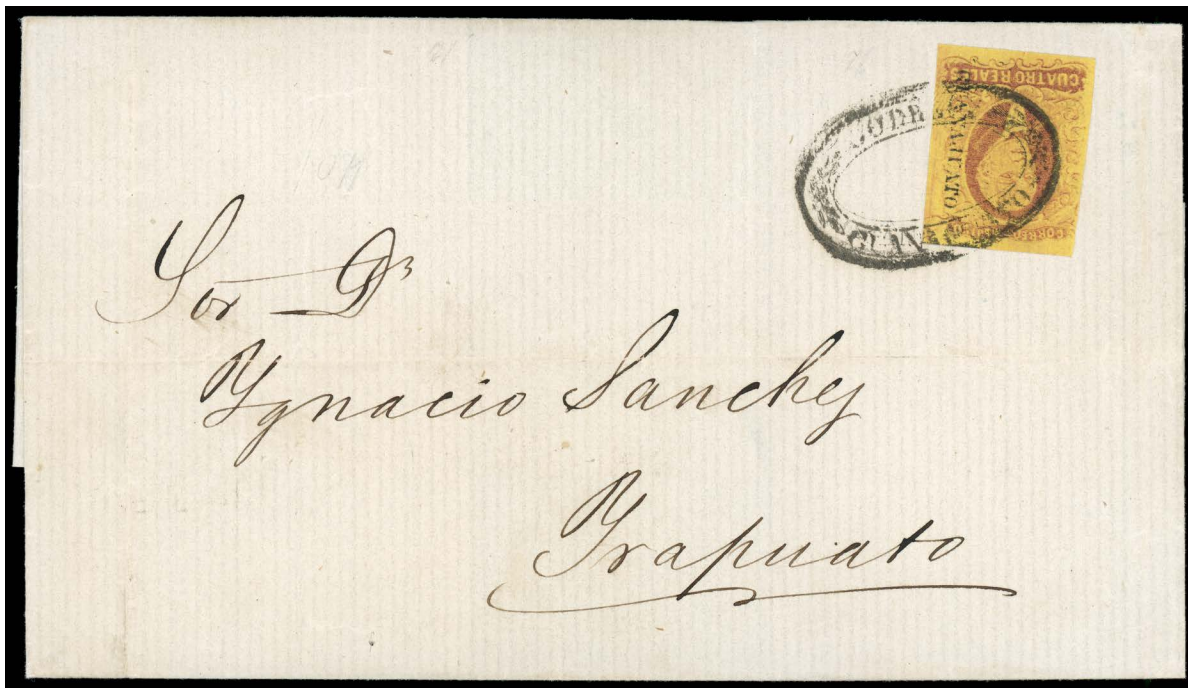 CUATRO REALES
GUANAJUATO
CORREOS
Sor Dn
Ygnacio Sanchez
Yrapuato